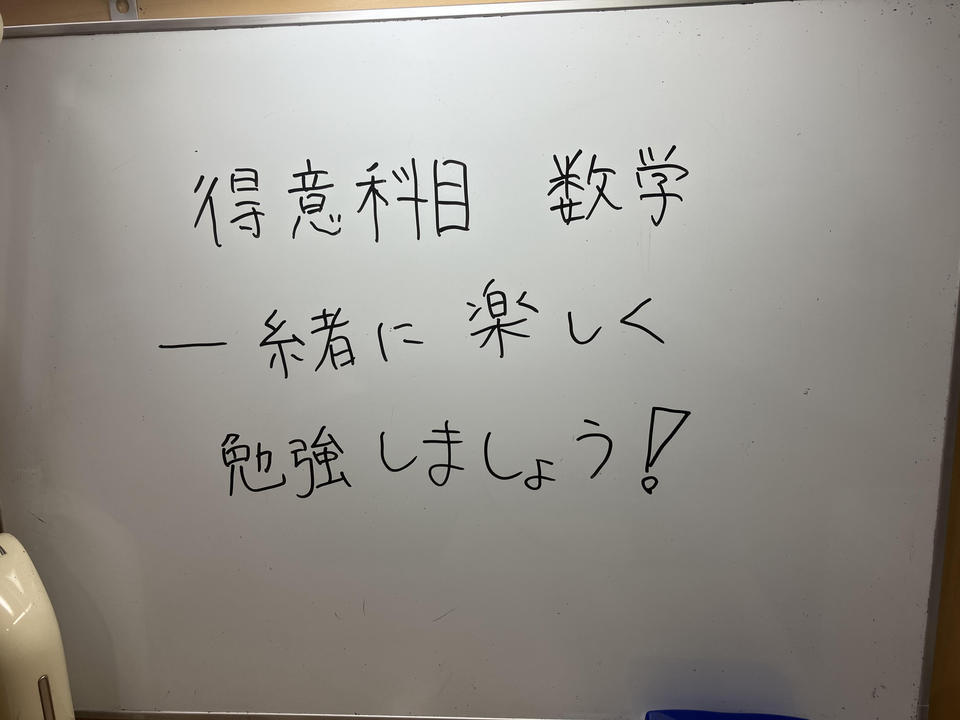 得意科目　数学
一緒に楽しく
勉強しましょう!